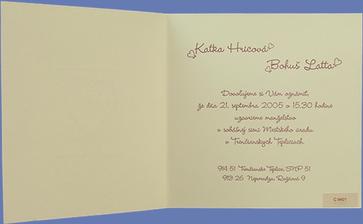 Katka Hricová
Bohuš Latta
Dovoľujeme si Vám oznámiť,
že dňa 21. septembra 2005 o 15.30 hodine
uzavrieme manželstvo
v sobášnej sieni Mestského úradu
v Trenčianskych Tepliciach
914 51 Trenčianske Teplice, SNP 51
913 26 Neporadza, Rožňová 9